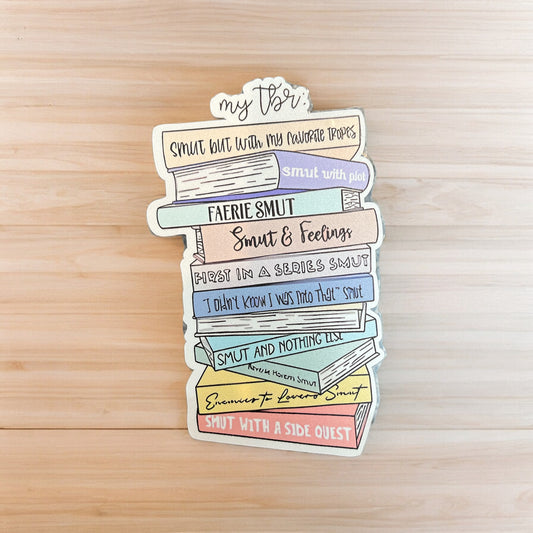 my tbr:
Smut but with my favorite tropes
smut with plot
FAERIE SMUT
Smut & Feelings
FIRST IN A SERIES SMUT
"I didn't know I was into that" smut
SMUT AND NOTHING ELSE
Reverse Harem Smut
Enemies to Lovers Smut
SMUT WITH A SIDE QUEST